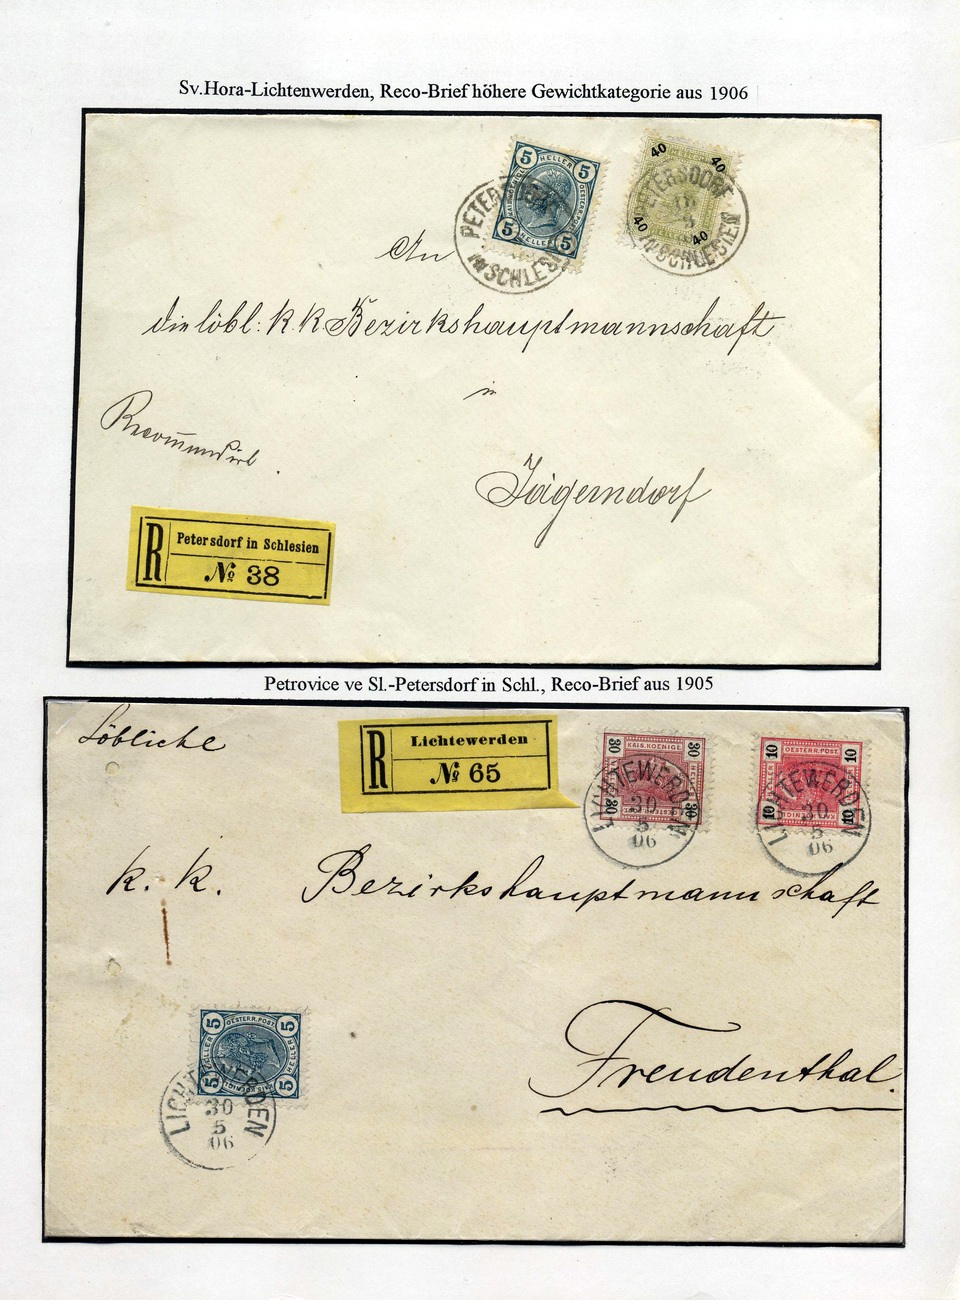 Sv.Hora-Lichtenwerden, Reco-Brief höhere Gewichtkategorie aus 1906
5 HELLER 5
5 HELLER 5
40 40
40 40
PETERSDORF
IN SCHLESIEN
An
die löbl: k k Bezirkshauptmannschaft
in
Recommandirt
Jägerndorf
R Petersdorf in Schlesien
№ 38
Petrovice ve Sl.-Petersdorf in Schl., Reco-Brief aus 1905
Löbliche
R Lichtewerden
№ 65
30 KAIS.KOENIGL. 30
30 30
LICHTEWERDEN
30
5
06
10 OESTERR.POST. 10
10 10
LICHTEWERDEN
30
5
06
k. k. Bezirkshauptmannschaft
Freudenthal.
5 OESTERR.POST. 5
HELLER HELLER
5 5
LICHTEWERDEN
30
5
06